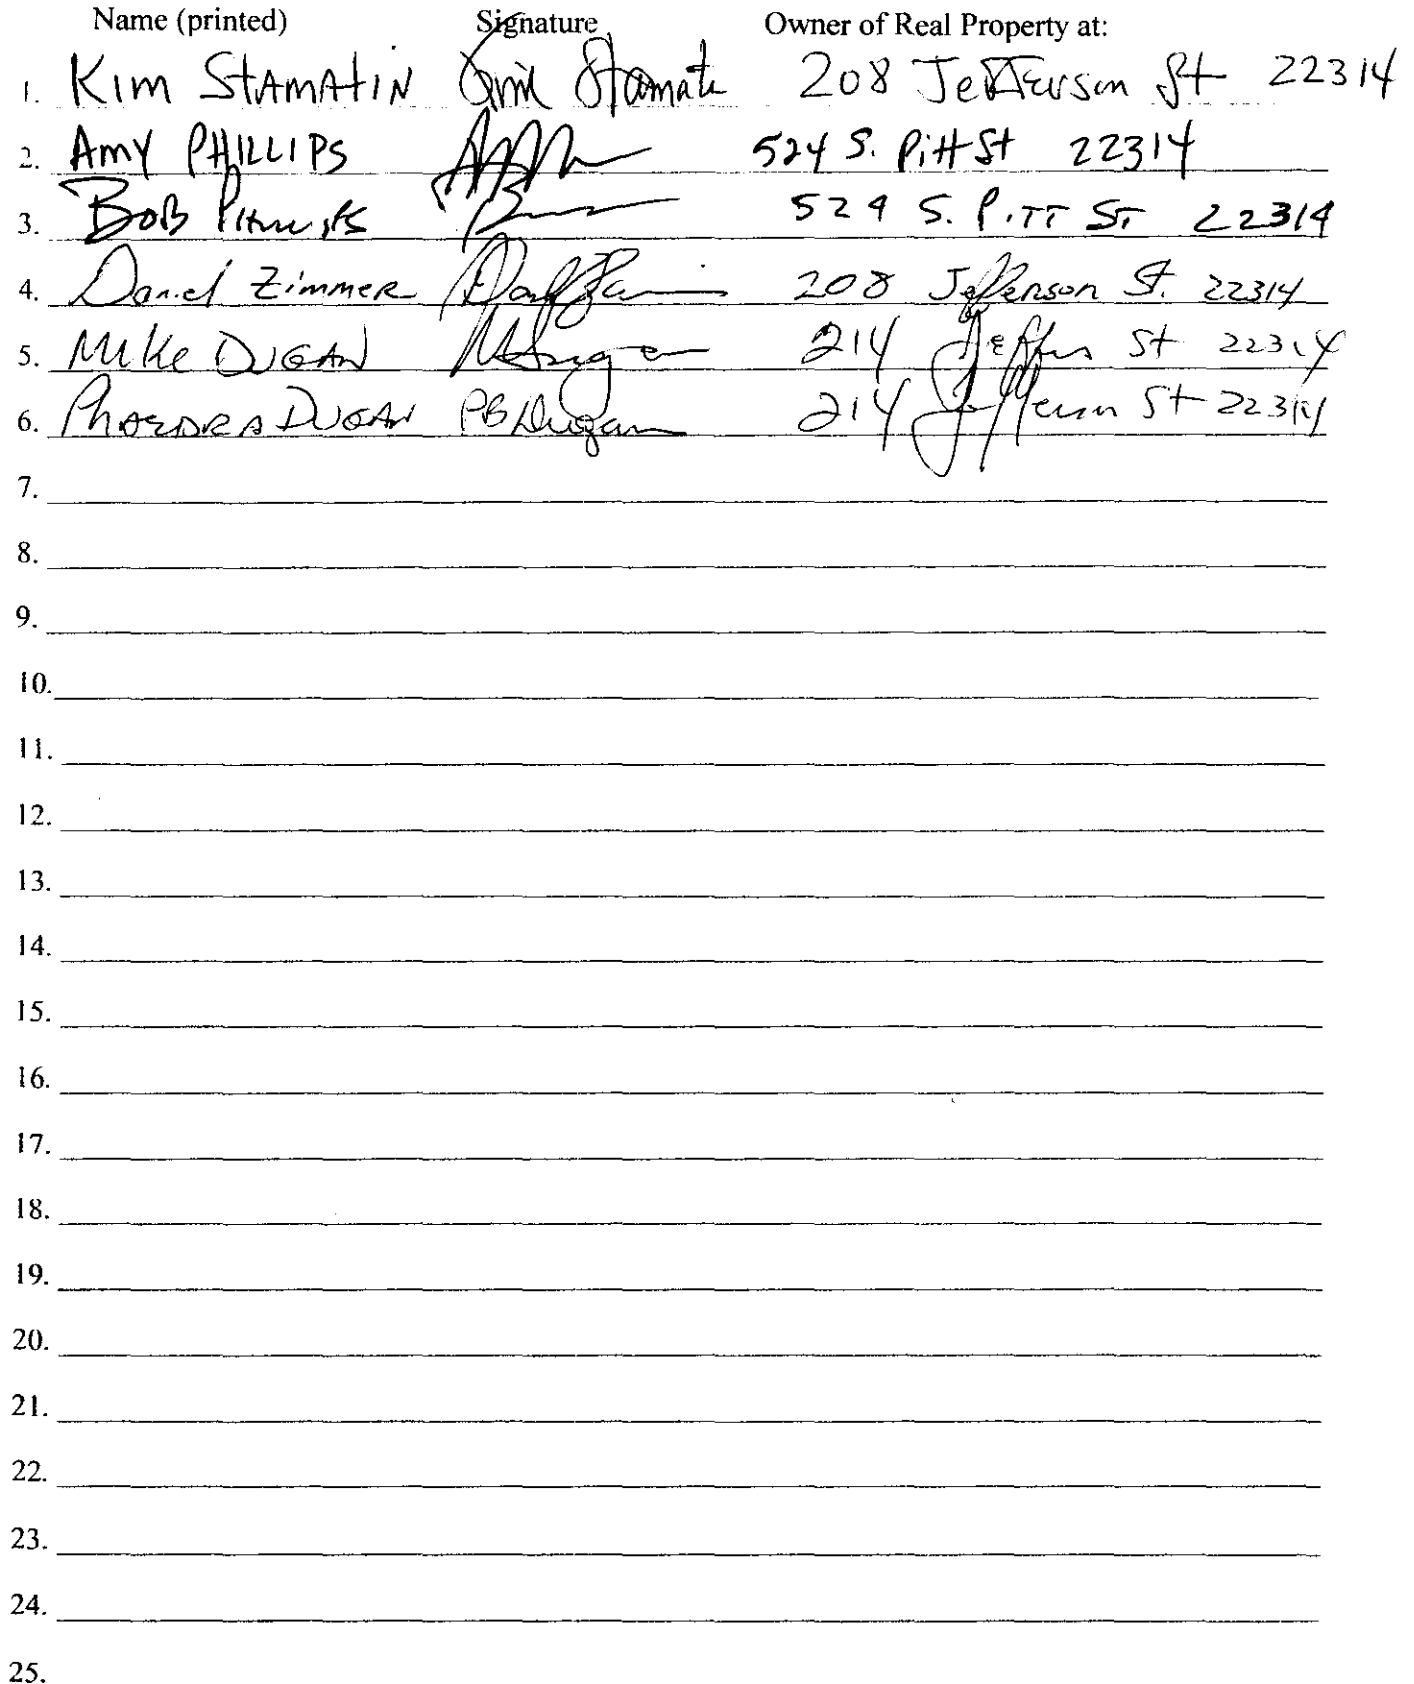 Name (printed) Signature Owner of Real Property at:
1. Kim StAmAtiN Kim Stamati 208 Jefferson St 22314
2. Amy PHILLIPS 524 S. Pitt St 22314
3. BOB PHILLIPS 524 S. PITT ST 22314
4. Daniel Zimmer 208 Jefferson St. 22314
5. Mike DUGAN MDugan 214 Jeffers St 22314
6. PHAEDRA DUGAN PBDugan 214 Jefferson St 22314
7.
8.
9.
10.
11.
12.
13.
14.
15.
16.
17.
18.
19.
20.
21.
22.
23.
24.
25.